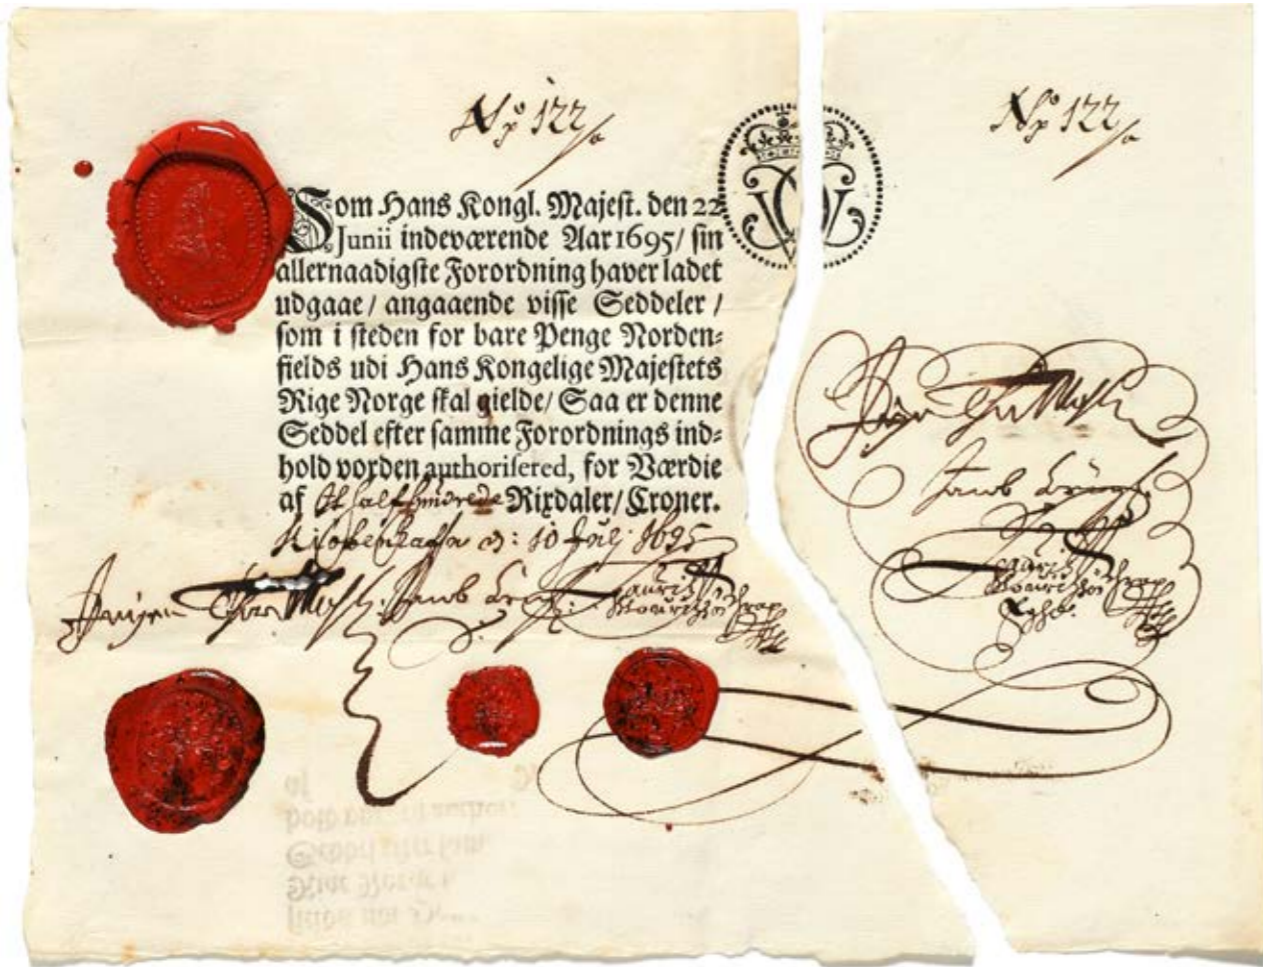 No 122
No 122
Som Hans Kongl. Majest. den 22
Junii indeværende Aar 1695/ sin
allernaadigste Forordning haver ladet
udgaae / angaaende visse Seddeler /
som i steden for bare Penge Norden=
fields udi Hans Kongelige Majestets
Rige Norge skal gielde/ Saa er denne
Seddel efter samme Forordnings ind=
hold vorden authorisered, for Værdie
af Et halfhundrede Rixdaler/ Croner.
10 Julj 1695